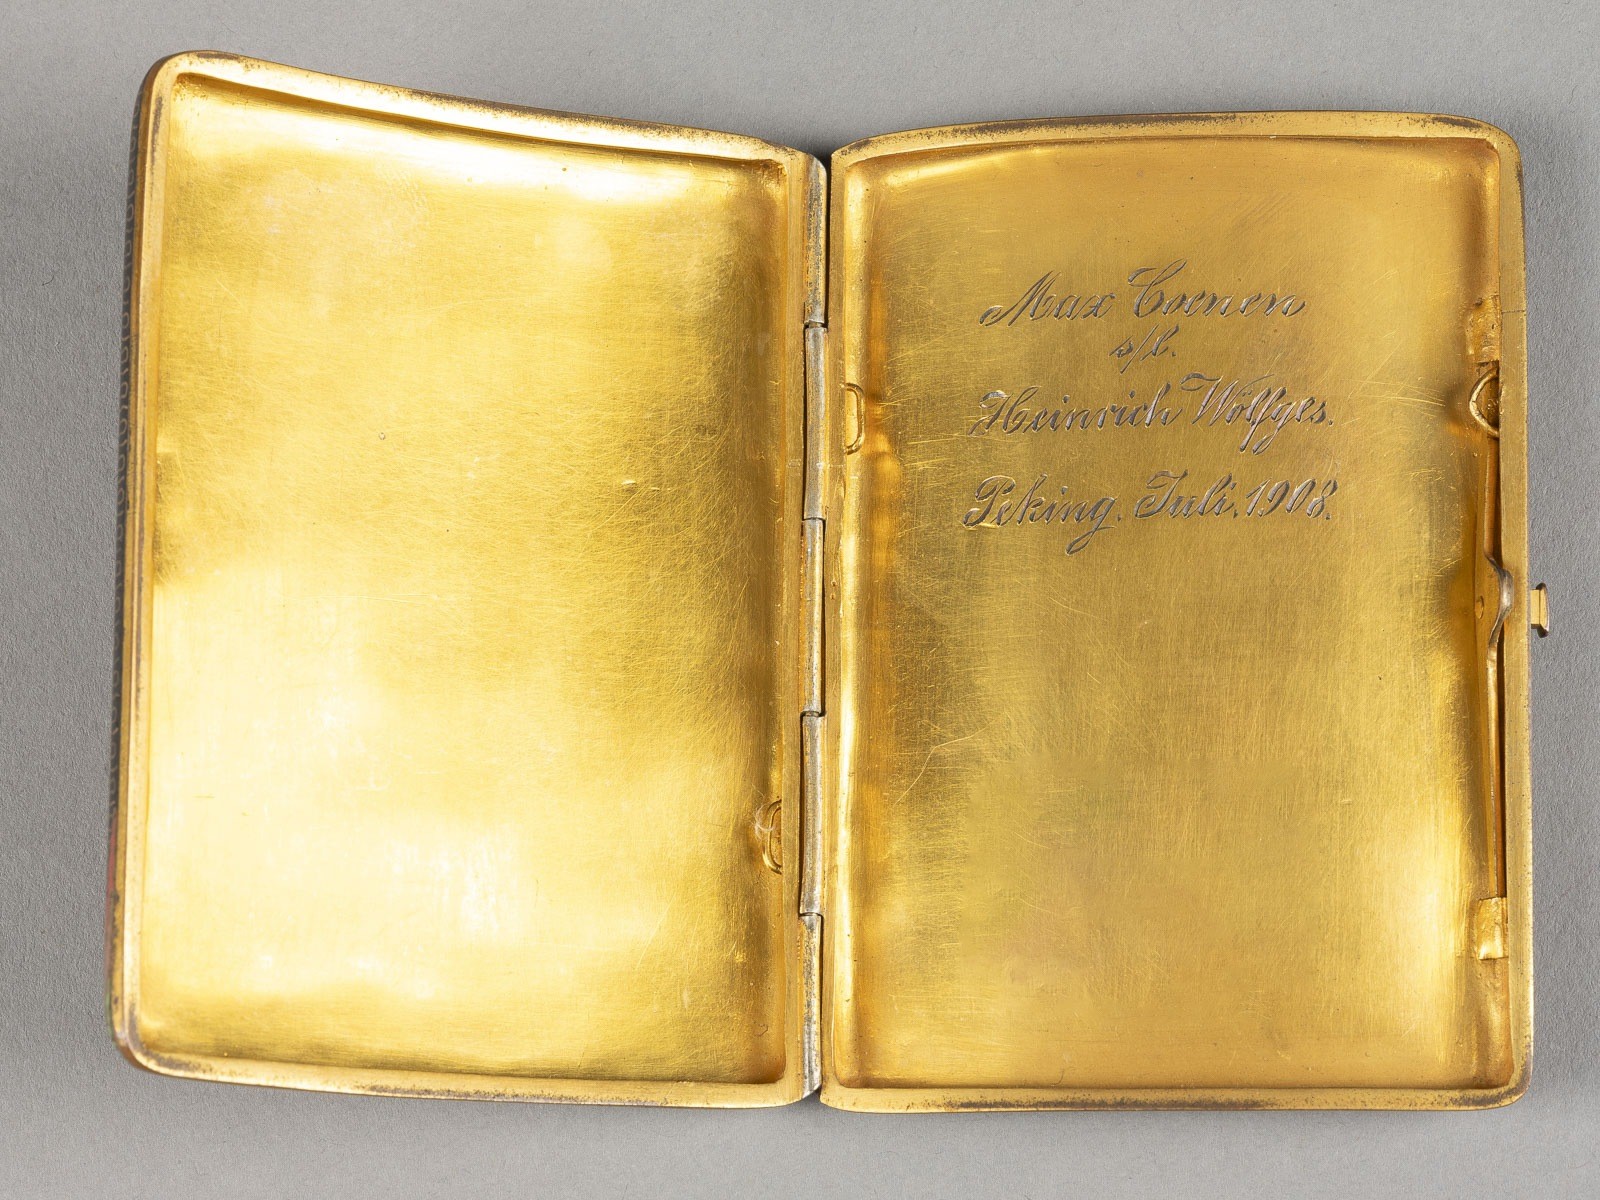 Max Coenen
s/l.
Heinrich Wölfges.
Peking. Juli. 1908.